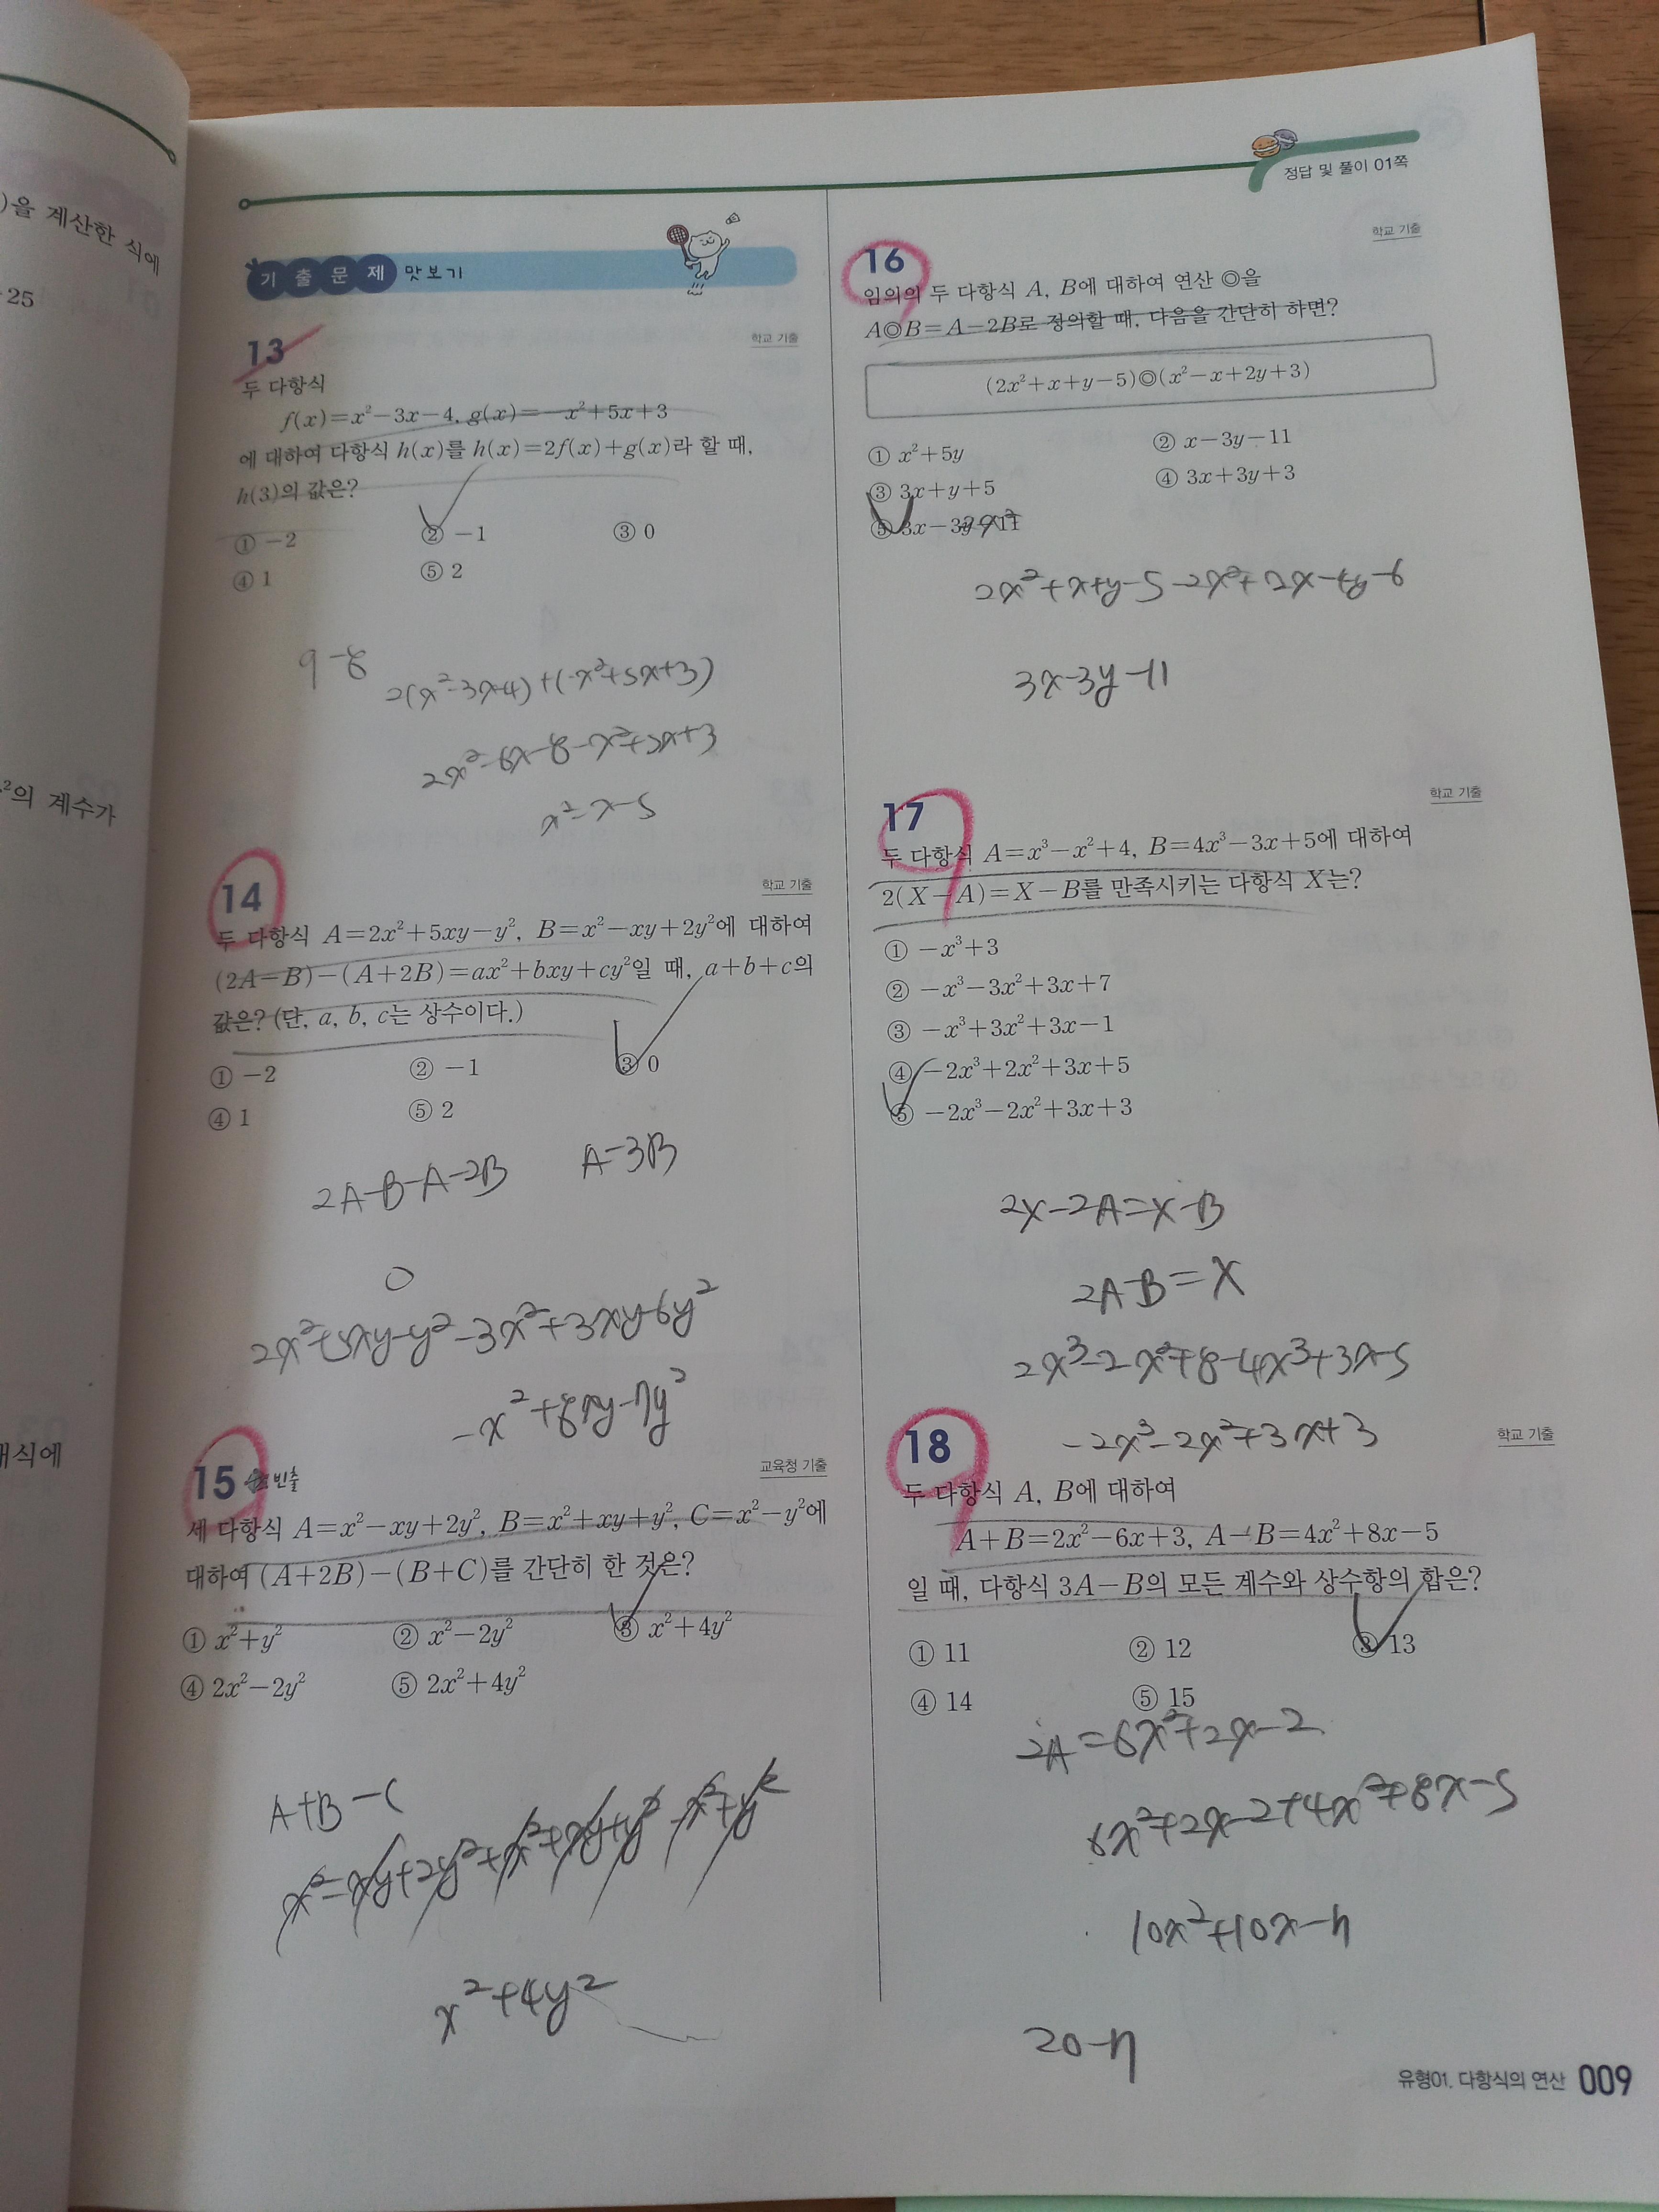 )을 계산한 식에
25
²의 계수가
식에
정답 및 풀이 01쪽
기출문제 맛보기
13
학교 기출
두 다항식
f(x)=x²-3x-4, g(x)=-x²+5x+3
에 대하여 다항식 h(x)를 h(x)=2f(x)+g(x)라 할 때,
h(3)의 값은?
① -2 ② -1 ③ 0
④ 1 ⑤ 2
9-8
2(x²-3x-4)+(-x²+5x+3)
2x²-6x-8-x²+5x+3
x²-x-5
14
학교 기출
두 다항식 A=2x²+5xy-y², B=x²-xy+2y²에 대하여
(2A-B)-(A+2B)=ax²+bxy+cy²일 때, a+b+c의
값은? (단, a, b, c는 상수이다.)
① -2 ② -1 ③ 0
④ 1 ⑤ 2
2A-B-A-2B A-3B
0
2x²+5xy-y²-3x²+3xy-6y²
-x²+8xy-7y²
15 빈출
교육청 기출
세 다항식 A=x²-xy+2y², B=x²+xy+y², C=x²-y²에
대하여 (A+2B)-(B+C)를 간단히 한 것은?
① x²+y² ② x²-2y² ③ x²+4y²
④ 2x²-2y² ⑤ 2x²+4y²
A+B-C
x²-xy+2y²+x²+xy+y²-x²+y²
x²+4y²
학교 기출
16
임의의 두 다항식 A, B에 대하여 연산 ◎을
A◎B=A-2B로 정의할 때, 다음을 간단히 하면?
(2x²+x+y-5)◎(x²-x+2y+3)
① x²+5y ② x-3y-11
③ 3x+y+5 ④ 3x+3y+3
⑤ 3x-3y-11
2x²+x+y-5-2x²+2x-4y-6
3x-3y-11
17
학교 기출
두 다항식 A=x³-x²+4, B=4x³-3x+5에 대하여
2(X-A)=X-B를 만족시키는 다항식 X는?
① -x³+3
② -x³-3x²+3x+7
③ -x³+3x²+3x-1
④ -2x³+2x²+3x+5
⑤ -2x³-2x²+3x+3
2X-2A=X-B
2A-B=X
2x³-2x²+8-4x³+3x-5
-2x³-2x²+3x+3
18
학교 기출
두 다항식 A, B에 대하여
A+B=2x²-6x+3, A-B=4x²+8x-5
일 때, 다항식 3A-B의 모든 계수와 상수항의 합은?
① 11 ② 12 ③ 13
④ 14 ⑤ 15
2A=6x²+2x-2
6x²+2x-2+4x²+8x-5
10x²+10x-7
20-7
유형01. 다항식의 연산 009